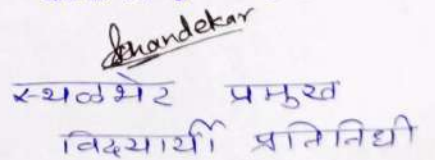 Khandekar
स्थळभेट प्रमुख
विदयार्थी प्रतिनिधी